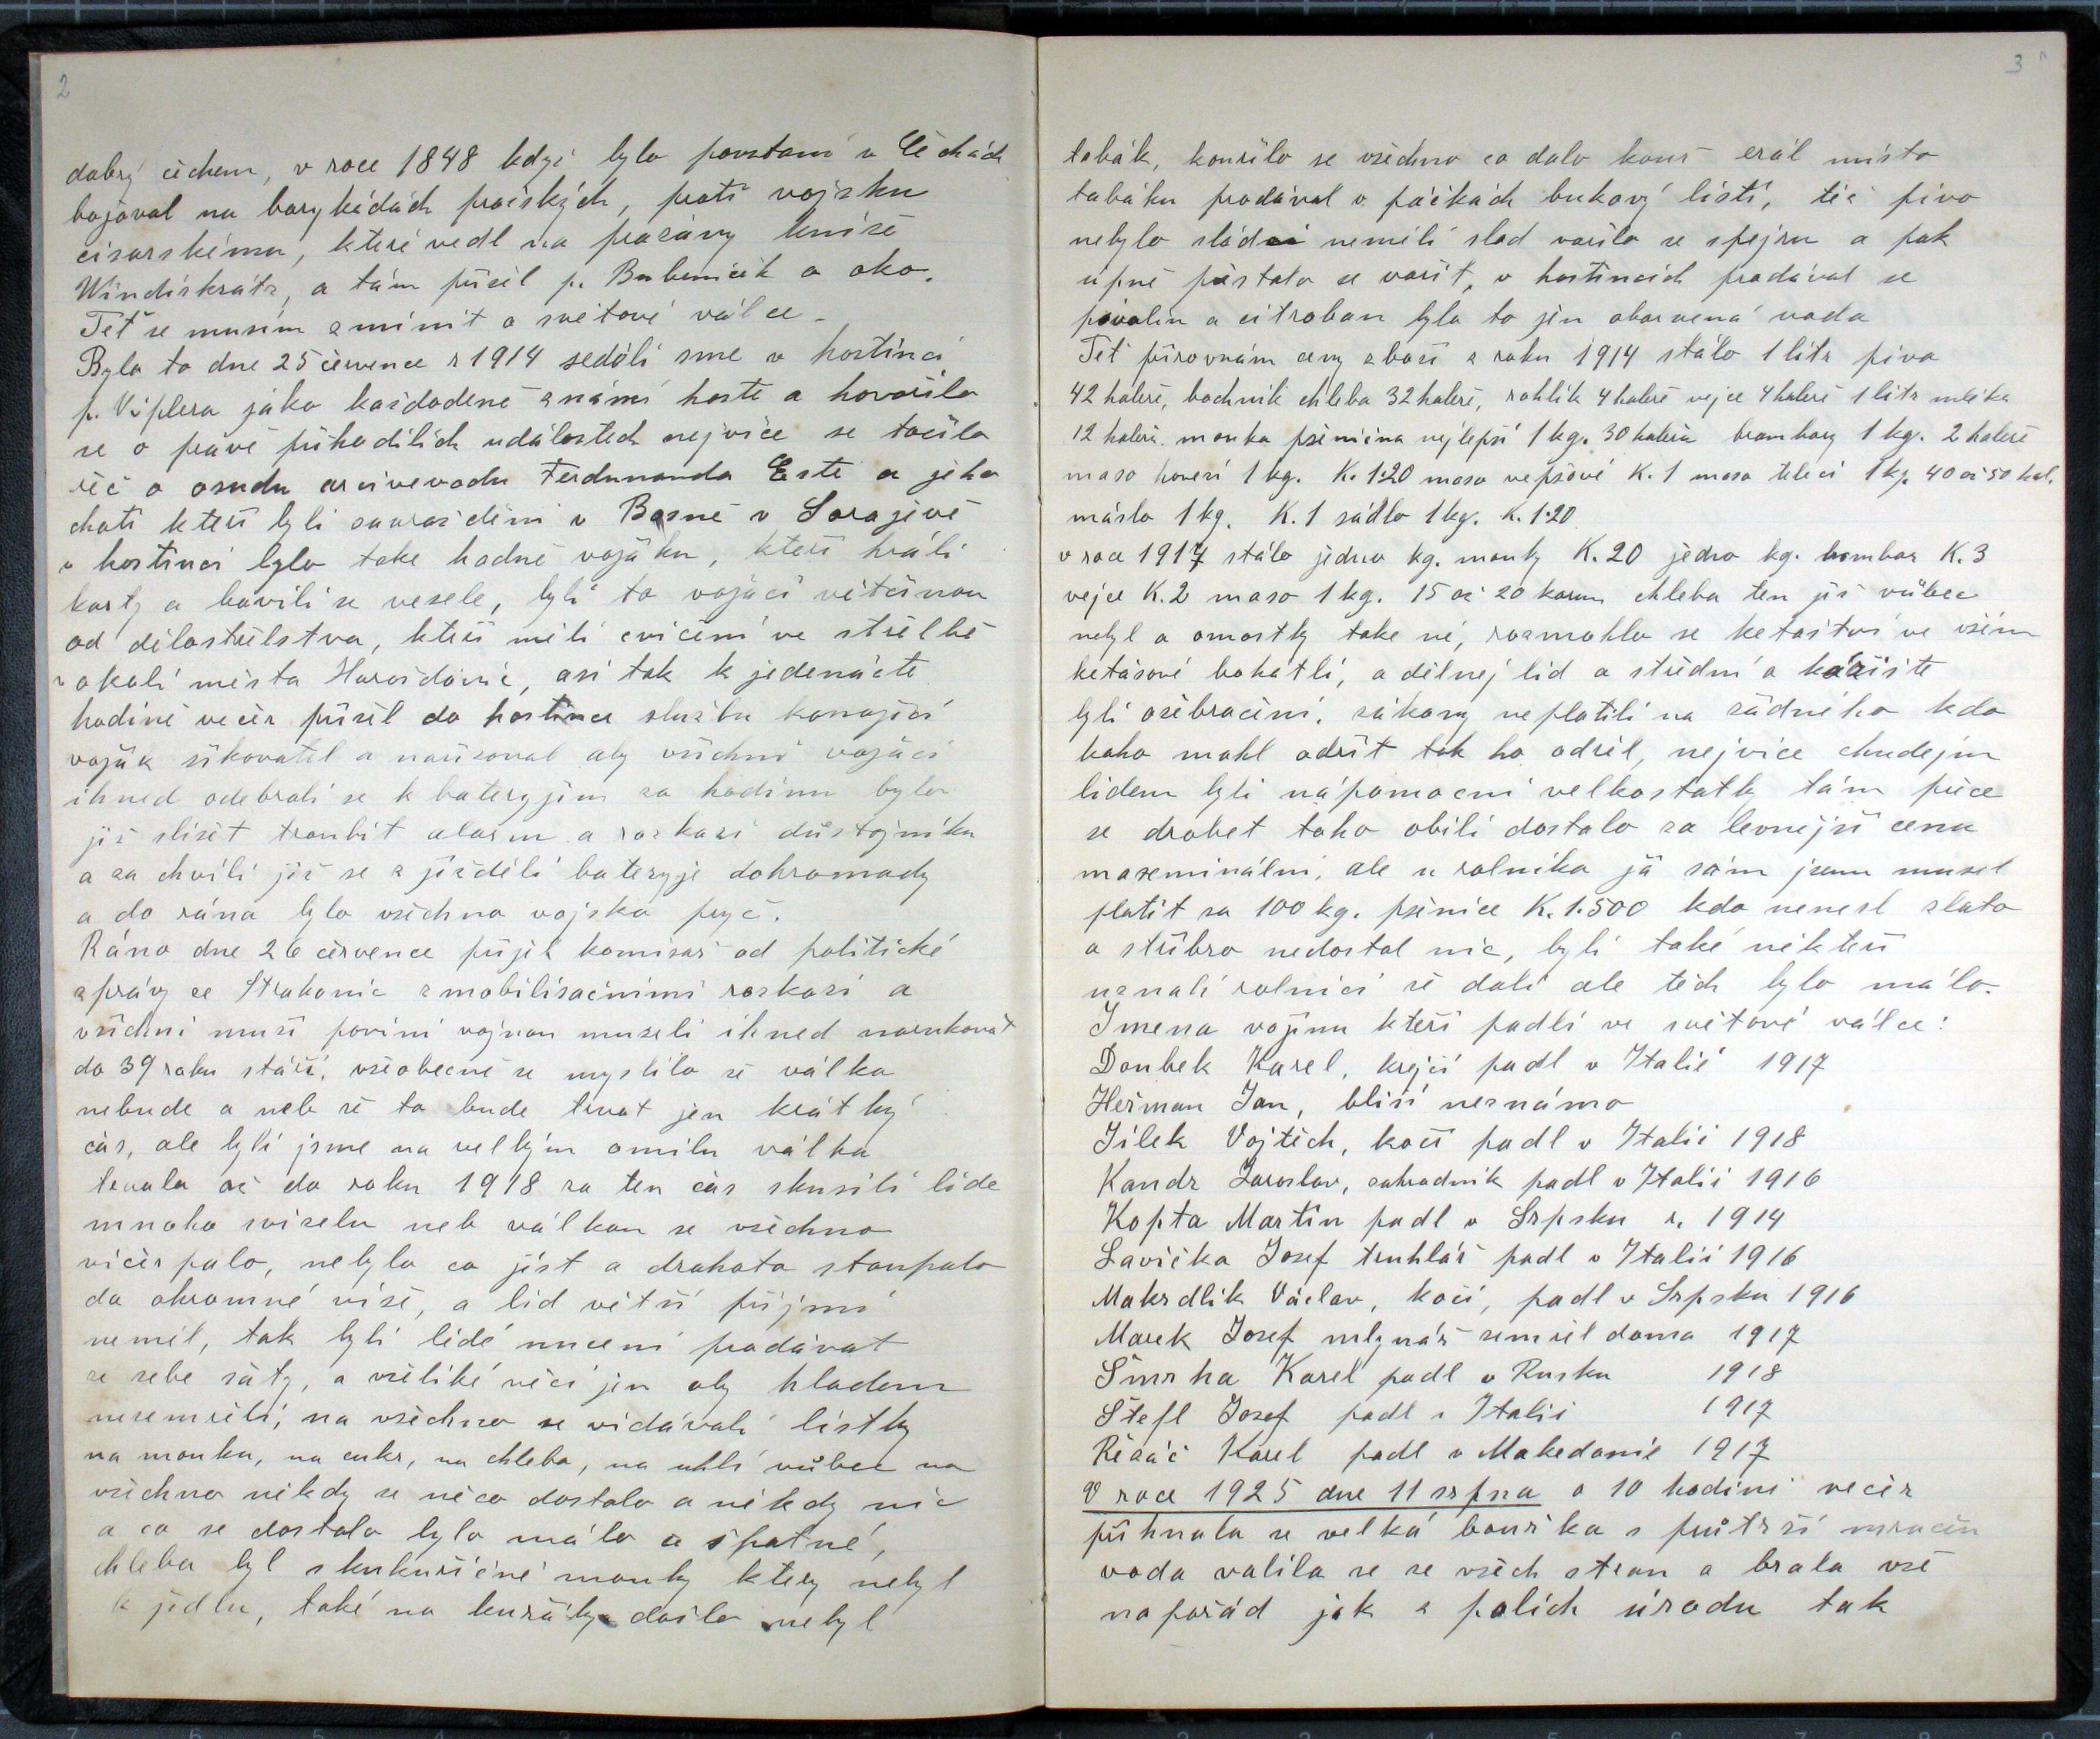 2
dobrý čechem, v roce 1848 když bylo povstaní v Čechách
bojoval na barykádách pražských, proti vojsku
cisarskému, které vedl na pražany kníže
Windiskrátz, a tám přišel p. Bubeniček o oko.
Teť se musím zminit o světové válce.
Bylo to dne 25 července r 1914 seděli sme v hostinci
p. Viplera jáko každodeně známí hosté a hovořilo
se o pravě přihodilích událostech nejvice se točila
řěč o osudu arcivevodu Ferdunanda Este a jeho
choti kteří byli zavražděni v Bosně v Sarajevě
v hostinci bylo take hodně vojáku, kteří hráli
karty a bavili se vesele, byli to vojáci vетčinou
od dělostřelstva, kteří měli cvičení ve střelbě
v okolí města Horažďovic, asi tak k jedenácté
hodině večer přišel do hostince službu konající
voják šikovatel a nařizoval aby všichni vojáci
ihned odebrali se k bateryjím za hodinu bylo
již slišet troubit alarm a rozkazi důstojníku
a za chvíli již se zjížděli bateryje dohromady
a do rána bylo všechno vojsko pryč.
Ráno dne 26 července přijel komisař od politické
zprávy ze Strakonic z mobilisačními rozkazi a
všichni muži poviní vojnou museli ihned narukovat
do 39 roku stáří, všeobecně se myslilo že válka
nebude a neb že to bude trvat jen krátký
čas, ale byli jsme na velkým omilu válka
trvala až do roku 1918 za ten čas skusili lide
mnoho svizelu neb válkou se všechno
vičerpalo, nebylo co jíst a drahota stoupala
do ohromné víše, a lid větší příjmi
neměl, tak byli lidé nuceni prodávat
ze sebe šáty, a všeliké věci jen aby hladem
nezemřeli, na všechno se vidávali lístky
na mouku, na cukr, na chleba, na uhlí vůbec na
všechno někdy se něco dostalo a někdy nic
a co se dostalo bylo málo a špatné,
chleba byl s kukuřičné mouky ktery nebyl
k jedlu, také na kuřáky došlo nebyl
3
tabák, kouřilo se všechno co dalo kouř erál místo
tabáku prodával v páčkách bukový listí, téš pivo
nebylo sládci neměli slad vařilo se spejru a pak
úpně přistalo se vořit, v hostincich prodával se
pivolin a citroban bylo to jen obarvená voda
Teť přirovnám ceny zboží z roku 1914 stálo 1 litr piva
42 haleře, bochnik chleba 32 haleře, rohlik 4 haleře vejce 4 haleře 1 litr mléka
12 haleřu. mouka pšeničná nejlepší 1 kg. 30 haleřu brambory 1 kg. 2 haleře
maso hovezí 1 kg. K. 1.20 maso vepřové K. 1 maso teleci 1 kg. 40 až 50 hal.
máslo 1 kg. K. 1 sádlo 1 kg. K. 1.20
v roce 1917 stálo jedno kg. mouky K. 20 jedno kg. brombor K. 3
vejce K. 2 maso 1 kg. 15 až 20 korun chleba ten již vůbec
nebyl a omastky take né, rozmohlo se keťaství ve všem
keťasové bohatli, a dělnej lid a střední a
byli ožebračeni, zákony neplatili na žádného kdo
koho mohl odřít tak ho odřel, nejvíce chudejm
lidem byli nápomocni velkostatky tám přece
se drobet toho obilí dostalo za levnejší cenu
maxeminálni, ale u rolníka já sám jsem musel
platit za 100 kg. pšenice K. 1.500 kdo nenesl zlato
a stříbro nedostal nic, byli také někteří
uznalí rolnici že dali ale těch bylo málo.
Jmena vojínu kteří padli ve světové válce:
Doubek Karel, krejčí padl v Italii 1917
Heřman Jan, bliší neznámo
Jílek Vojtěch, kočí padl v Italii 1918
Kandr Jaroslav, zahradník padl v Italii 1916
Kopta Martin padl v Srpsku r. 1914
Lavička Josef truhlář padl v Italii 1916
Makrdlik Václav, kočí, padl v Srpsku 1916
Marek Josef mlynář zemřel doma 1917
Šmrha Karel padl v Rusku 1918
Štefl Josef padl v Italii 1917
Řezáč Karel padl v Makedonie 1917
V roce 1925 dne 11 srpna o 10 hodini večer
přihnala se velká bouřka s průtrží mračen
voda valila se ze všech stran a brala vše
napořád jak z polích úrodu tak